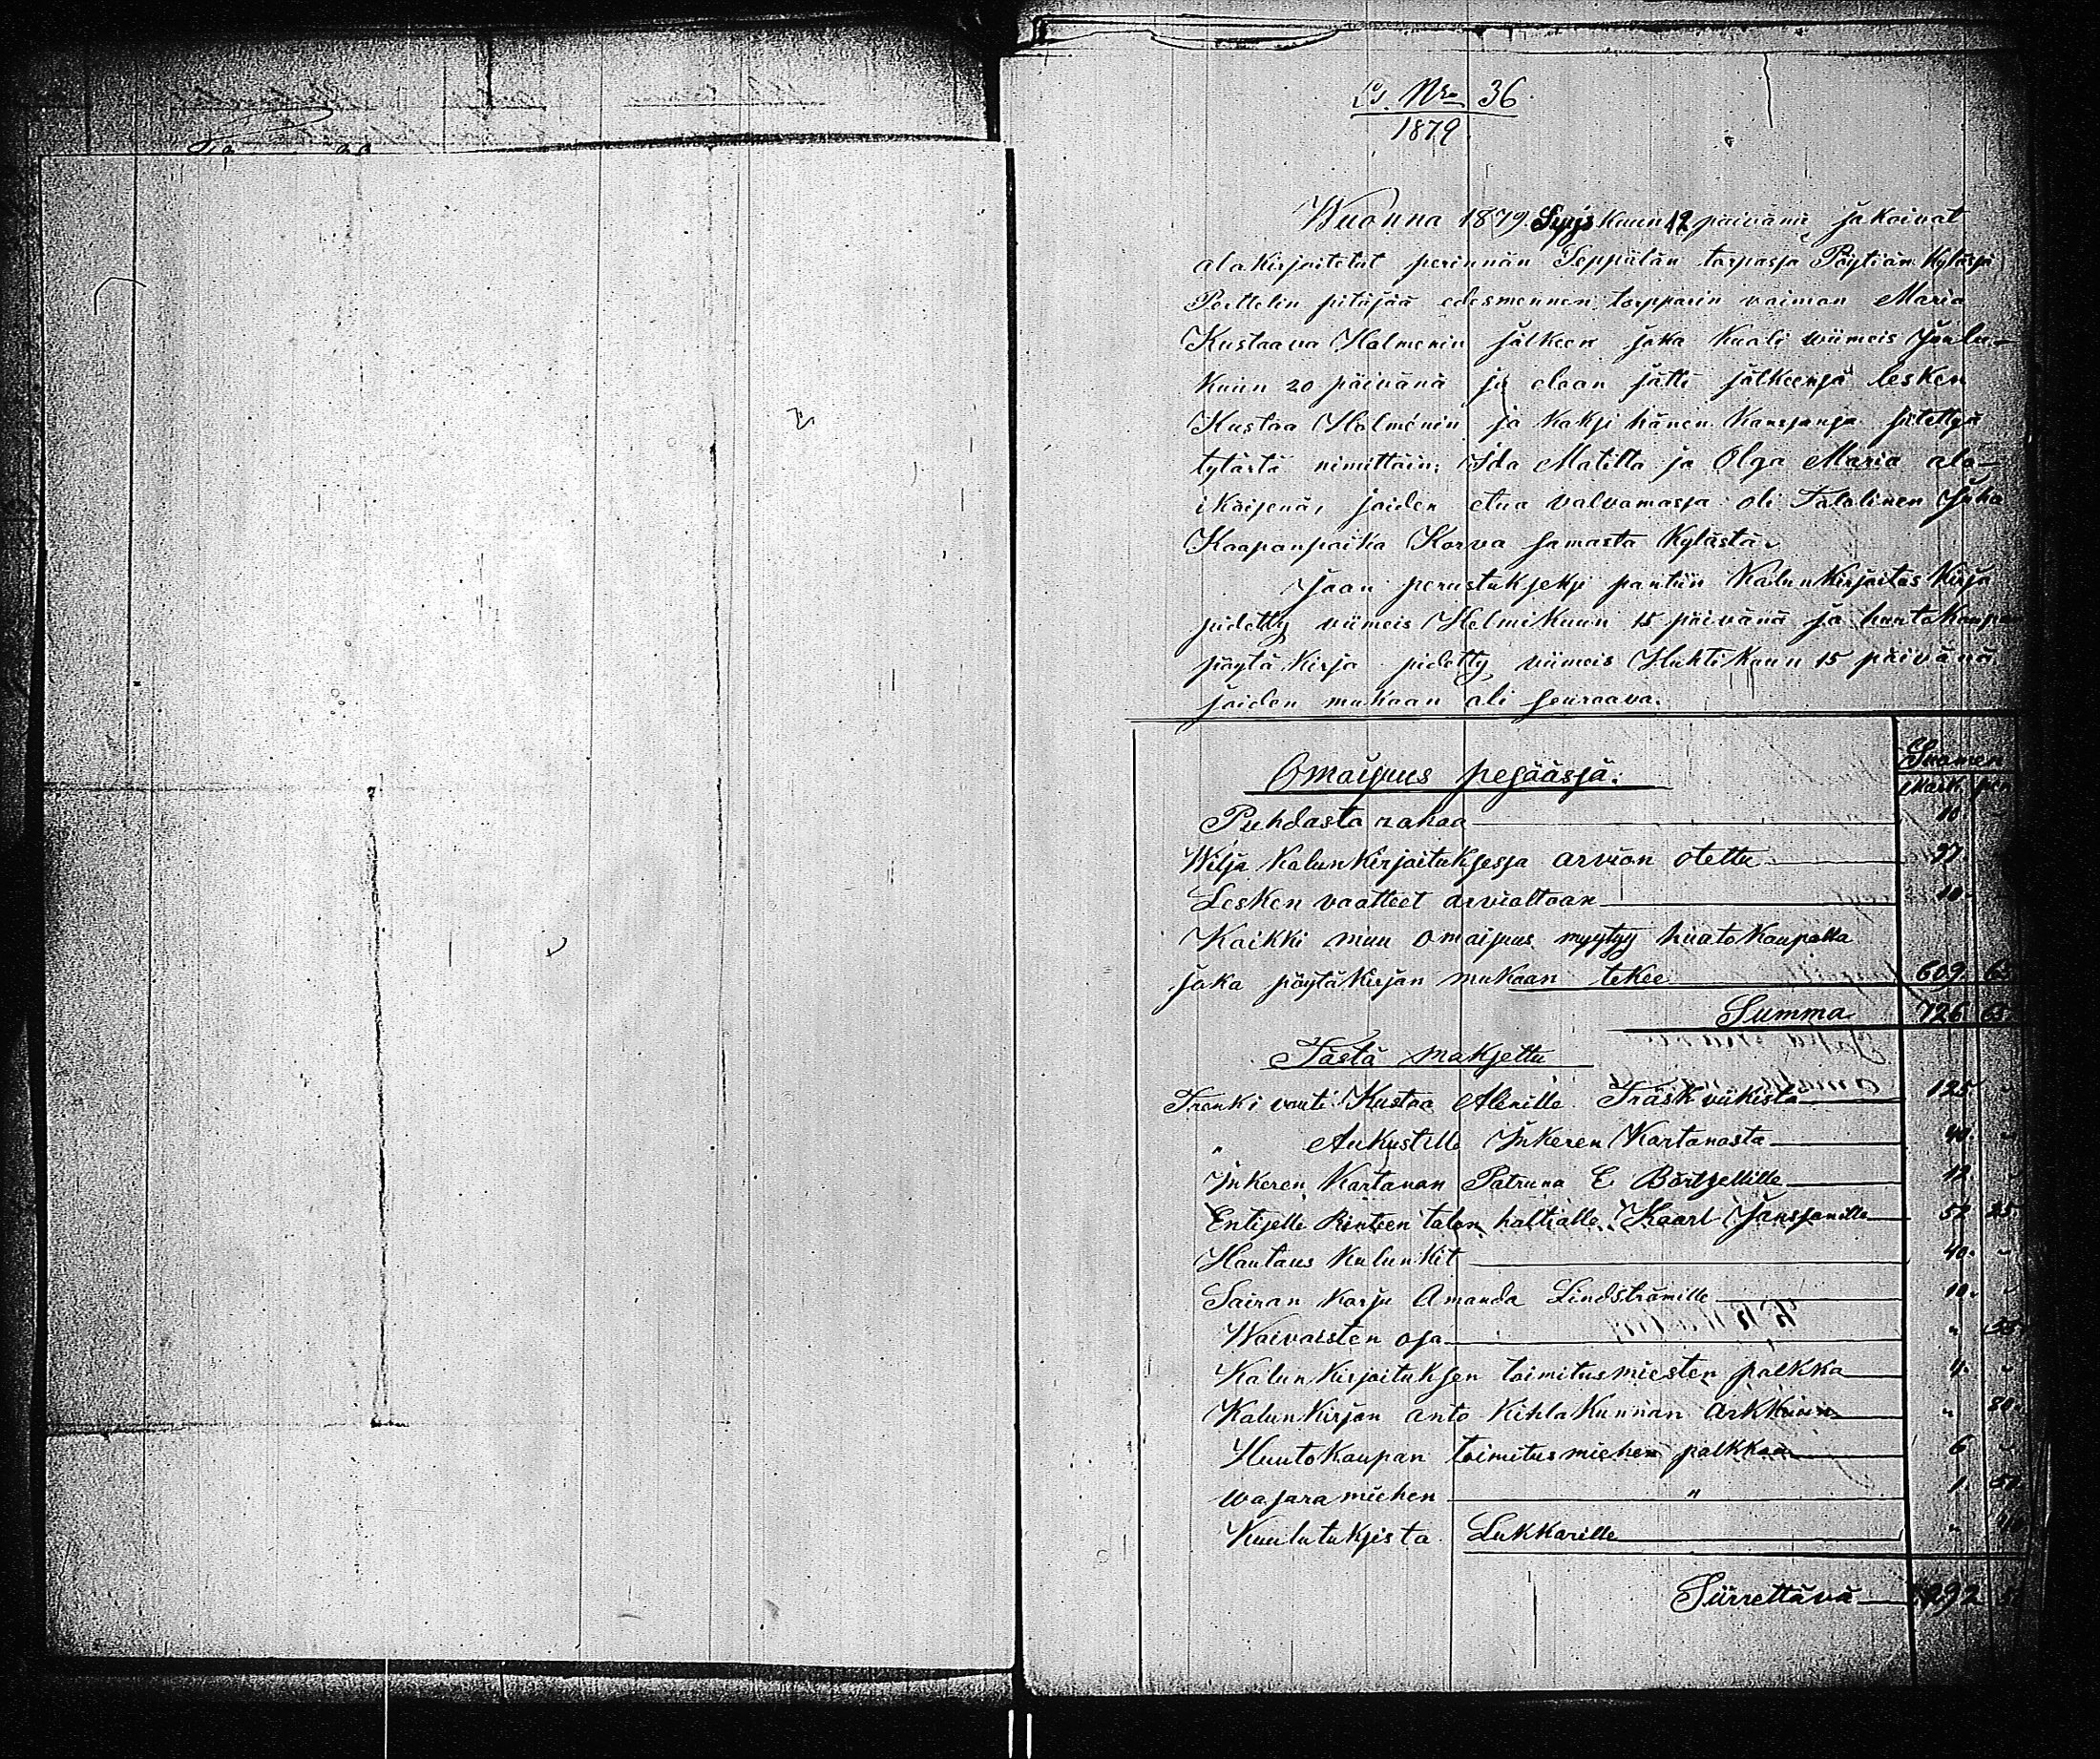 Ls. Nro 36
1879
Wuonna 1879 Syyskuun 12 päivänä jakoivat
alakirjoitetut perinnän Seppälän torpassa Pöytiön kylässä
Perttelin pitäjää edesmennen torpparin vaimon Maria
Kustaava Holmenin jälkeen joka kuoli viimeis Joulu-
kuun 20 päivänä ja eloon jätti jälkeensä lesken
Kustaa Holménin ja kaksi hänen kanssansa siitettyä
tytärtä nimittäin; Ida Matilta ja Olga Maria ala-
ikäisenä, joiden etua valvomassa oli Talolinen Juha
Kaapanpoika Korva samasta kylästä.
Jaon perustukseksi pantiin Kalunkirjoitus kirja
pidetty viimeis Helmikuun 15 päivänä ja huutokaupan
pöytäkirja pidetty viimeis Huhtikuun 15 päivänä
joiden mukaan oli seuraava.
Suomen
Omaisuus pesäässä. Mark. pen
Puhdasta rahaa 10
Wilja kalunkirjoituksessa arvion otettu 97
Lesken vaatteet arvioltaan 10 -
Kaikki muu omaisuus myytyy huutokaupalla
joka pöytäkirjan mukaan tekee 609. 65
Summa 726 65
Tästä maksettu
Trenki vouti Kustaa Alenille Träskviikistä 125. "
" Aukustille Inkeren Kartanosta 40. "
Inkeren Kartanon Patruna E Börtzellille 12. "
Entiselle Rinteen talon haltialle Kaarl Janssonille 52 25
Hautaus kulunkit 40. "
Sairan korju Amanda Lindströmille 10. "
Waivaisten osa "
Kalunkirjoituksen toimitusmiesten palkka 4. "
Kalunkirjan anto Kihlakunnan Arkkiivin " 80.
Huutokaupan toimitusmiehen palkkaa 6 "
Wasaramiehen " 1.
Kuulutuksista Lukkarille " 40
Siirrettävä 292